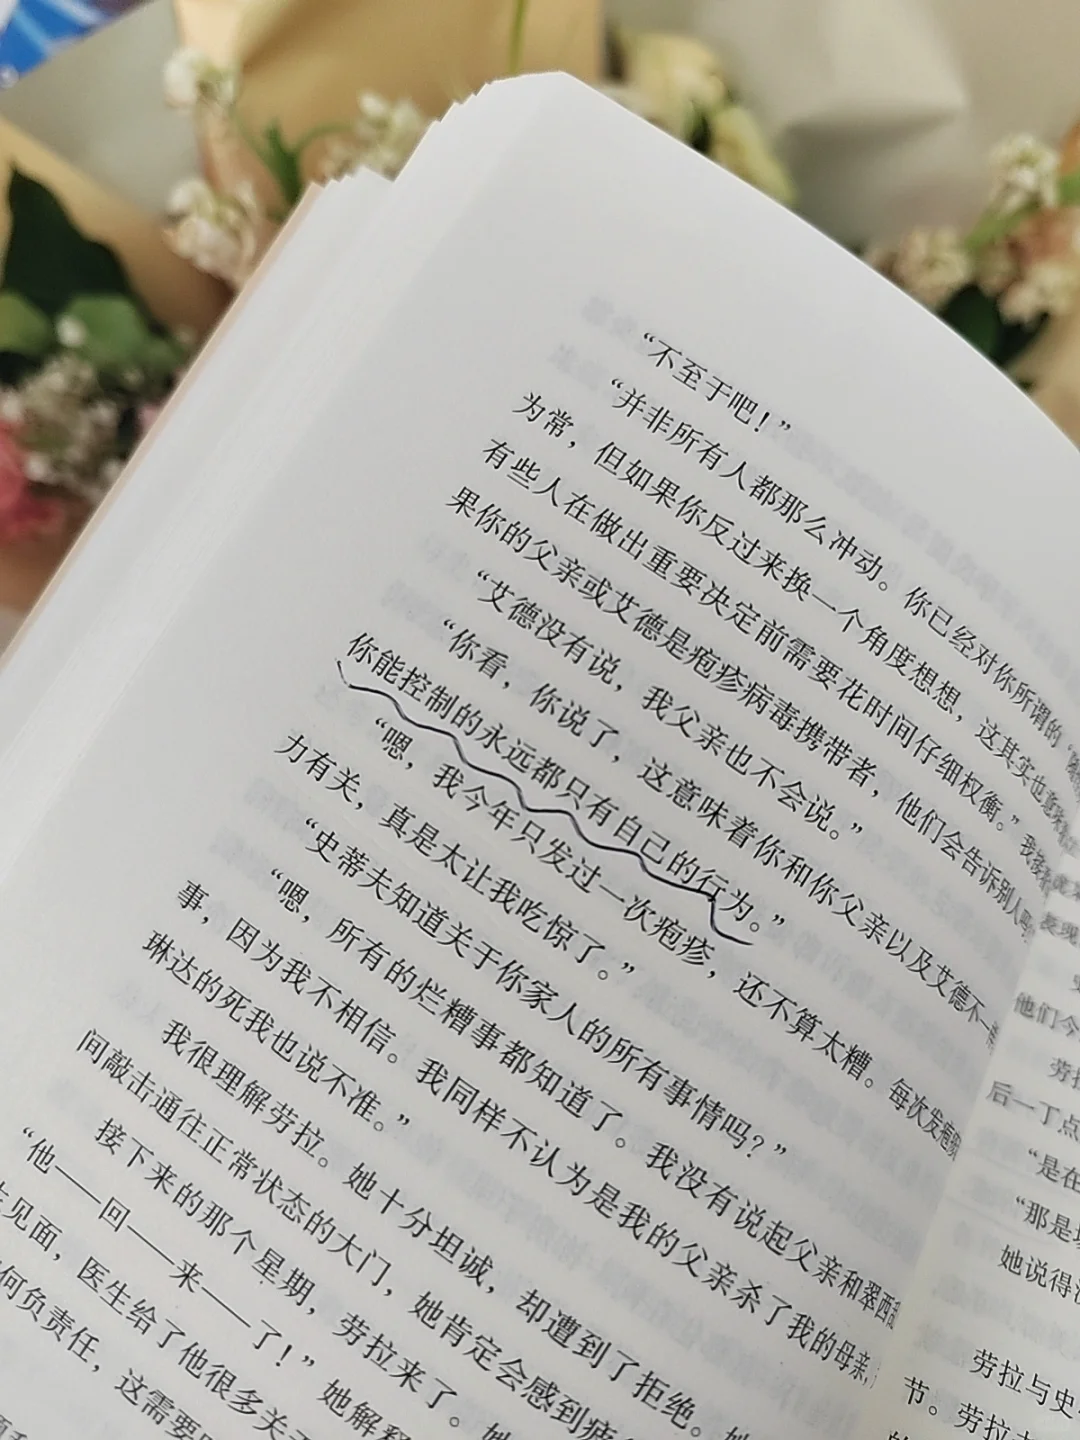 “不至于吧！”
“并非所有人都那么冲动。你已经对你所谓的
为常，但如果你反过来换一个角度想想，这其实也意味
有些人在做出重要决定前需要花时间仔细权衡。”我接着
果你的父亲或艾德是疱疹病毒携带者，他们会告诉别人吗
“艾德没有说，我父亲也不会说。”
“你看，你说了，这意味着你和你父亲以及艾德不一样
你能控制的永远都只有自己的行为。”
“嗯，我今年只发过一次疱疹，还不算太糟。每次发疱疹
力有关，真是太让我吃惊了。”
“史蒂夫知道关于你家人的所有事情吗？”
“嗯，所有的烂糟事都知道了。我没有说起父亲和翠西乱
事，因为我不相信。我同样不认为是我的父亲杀了我的母亲，
琳达的死我也说不准。”
我很理解劳拉。她十分坦诚，却遭到了拒绝。她
间敲击通往正常状态的大门，她肯定会感到疲
接下来的那个星期，劳拉来了。她
“他——回——来——了！”她解释
见面，医生给了他很多关于
何负责任，这需要
现
他们今
劳拉
后一丁点
“是在
“那是
她说得
劳拉与史
节。劳拉
的